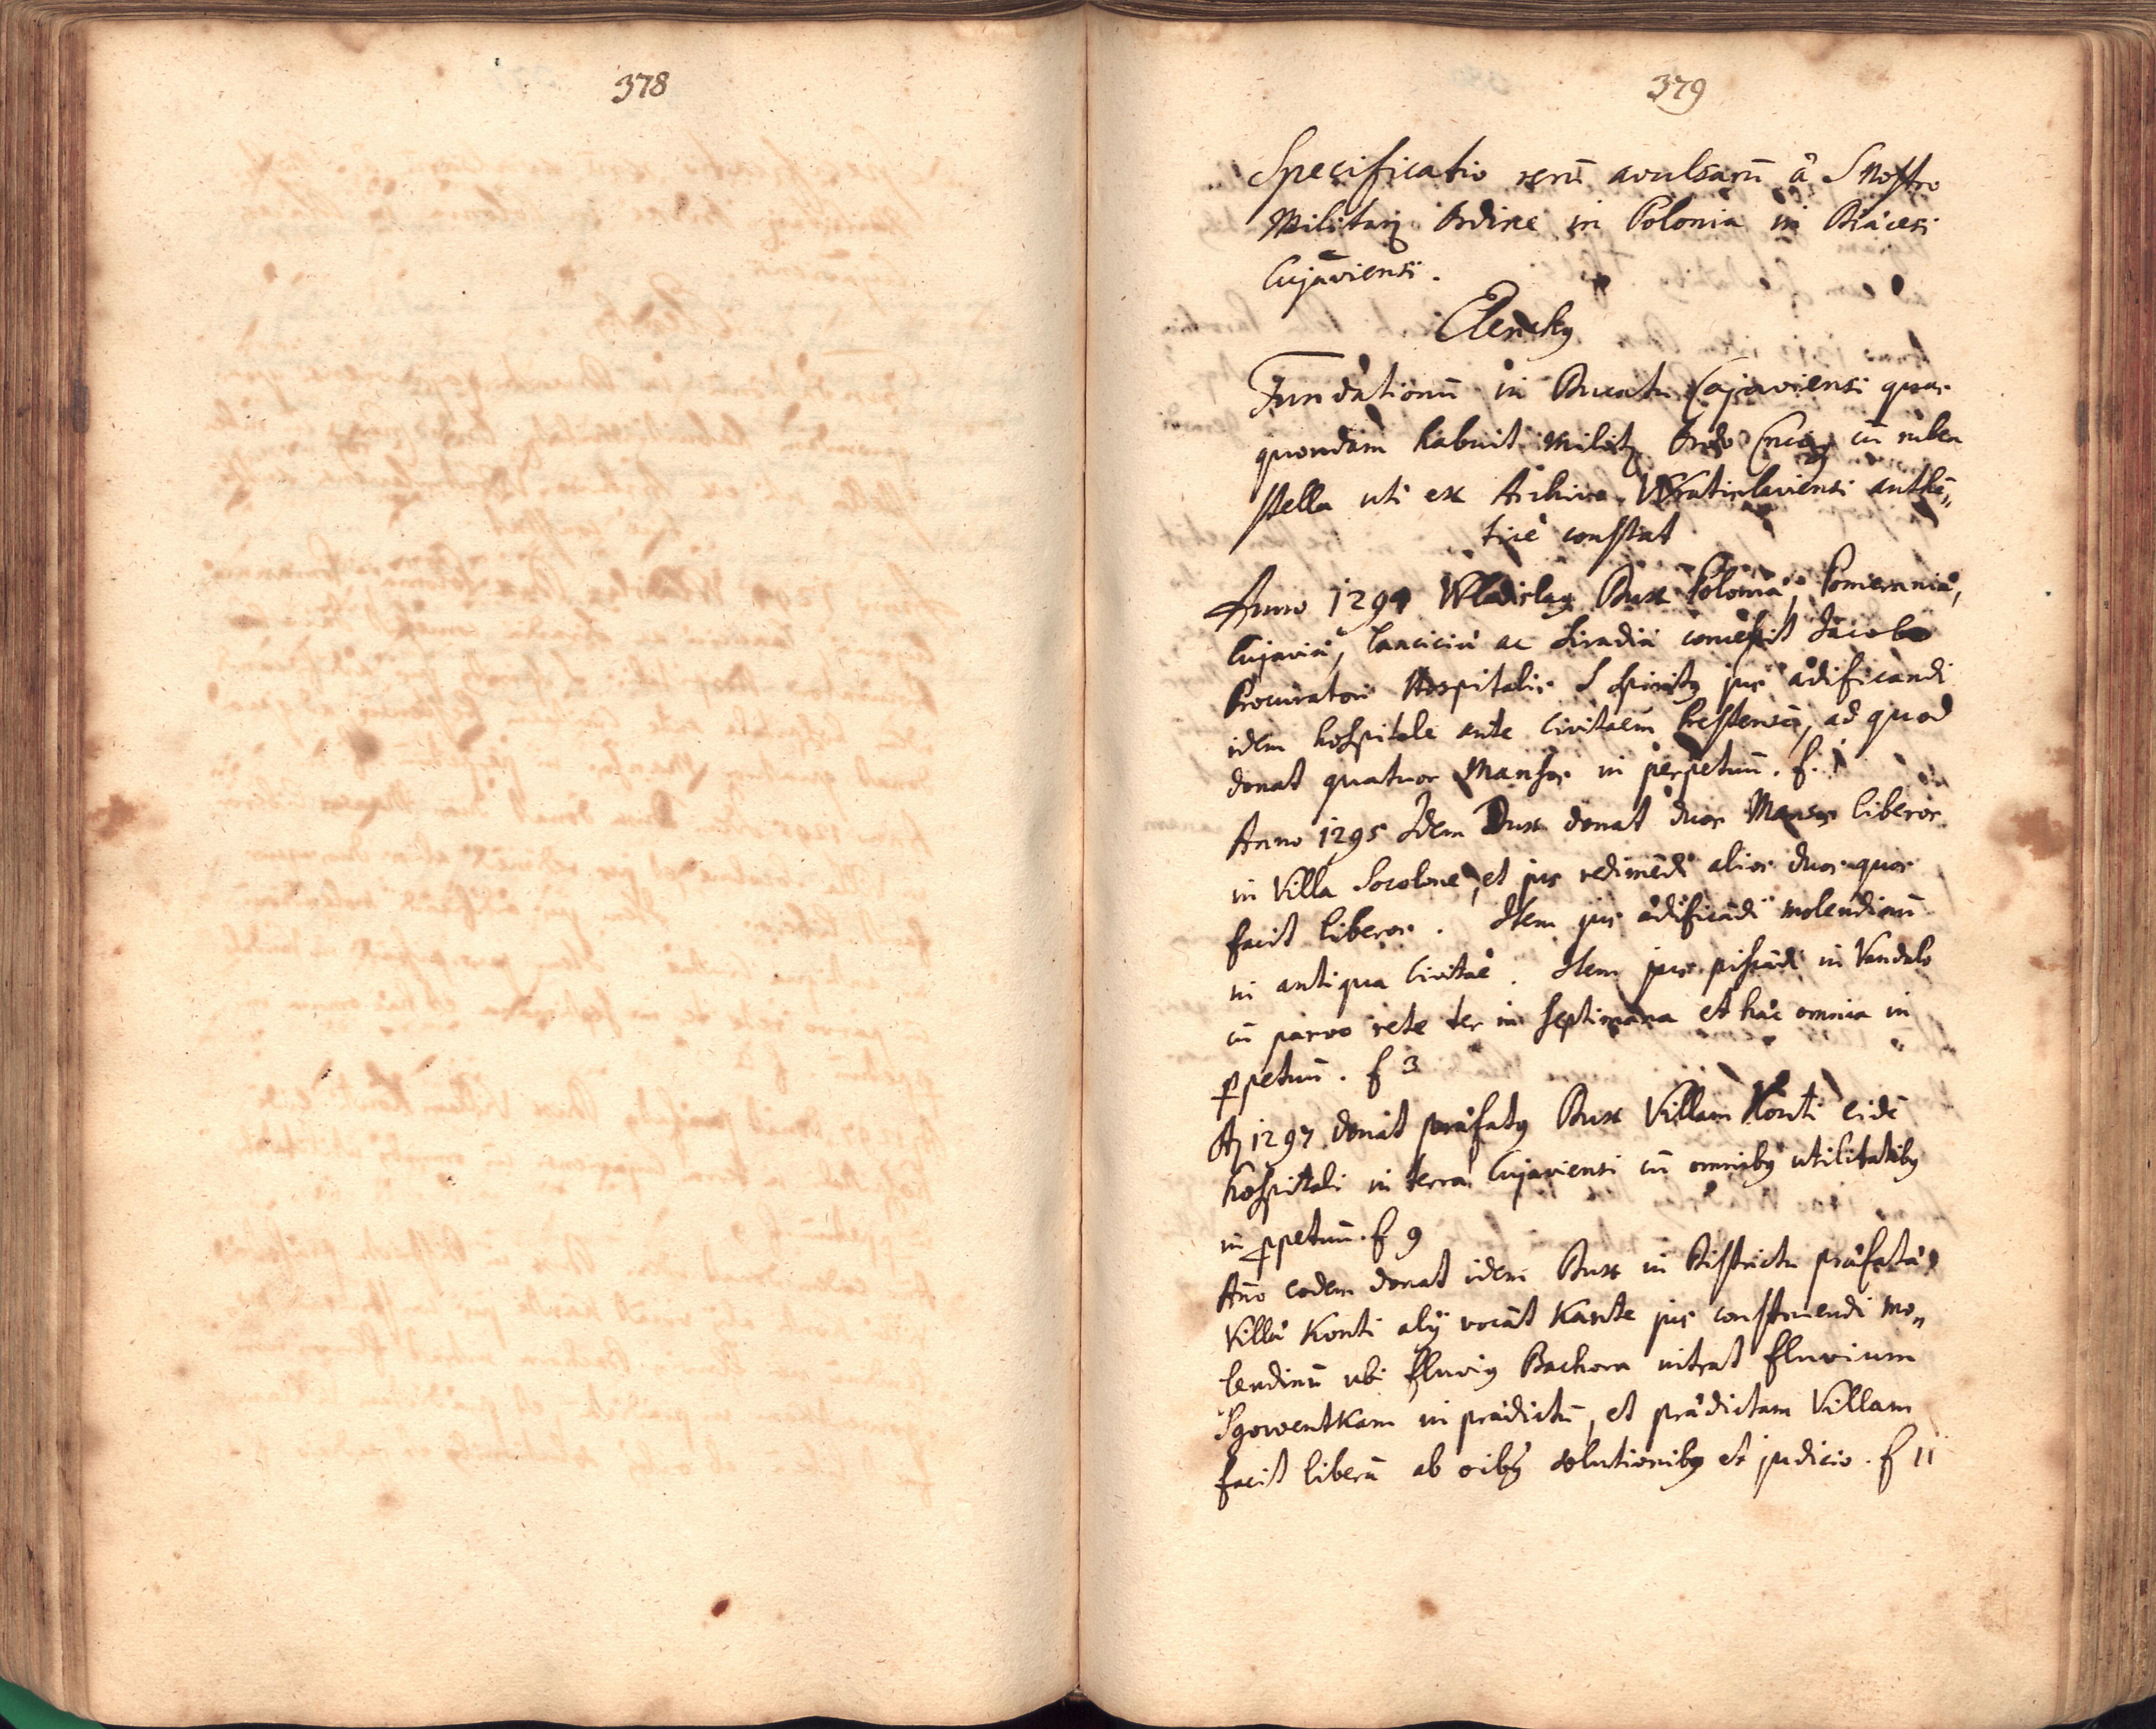 378
379
Specificatio rerū avulsarū à S Nostro
Militari Ordine in Polonia in Diäcesi
Cujaviensi.
Elenchꝰ
Fundationū in Ducatu Cujaviensi quas
quondam habuit Milit. Ordo Crucig cū rubea
stella uti ex Archivo Wratislaviensi authē„
ticè constat
Anno 1294 Wladislaꝰ Dux Poloniä, Pomeraniä,
Cujaviä, Lanciciä ac Siradiä concessit Jacobo
Procuratori Hospitalis S Spiritꝰ jus ädificandi
idem hospitale ante Civitaem brestensē, ad quod
donat quatuor Mansos in perpetuū. f. 1
Anno 1295 Idem Dux donat duos Mansos liberos
in Villa Socolone, et jus redimēdi alios duos quos
facit liberos. Item jus ädificādi molendinū
in antiqua Civitae. Item jus piscādi in Vandalo
cū parvo rete ter in septimana et häc omnia in
ꝑpetuū. f 3
Aō 1297 donat präfatꝰ Dux Villam Konti eidē
hospitali in terra Cujaviensi cū omnibꝰ utilitatibꝰ
in ꝑpetuū. f 9
Año eodem donat idem Dux in Districtu präfatä
Villä Konti alÿ vocāt Kante jus construendi mo„
lendinū ubi fluviꝰ Bachora intrat fluvium
Sgowentkam in prädictū, et prädictam Villam
facit liberā ab oibꝰ solutionibꝰ et judicio. f 11